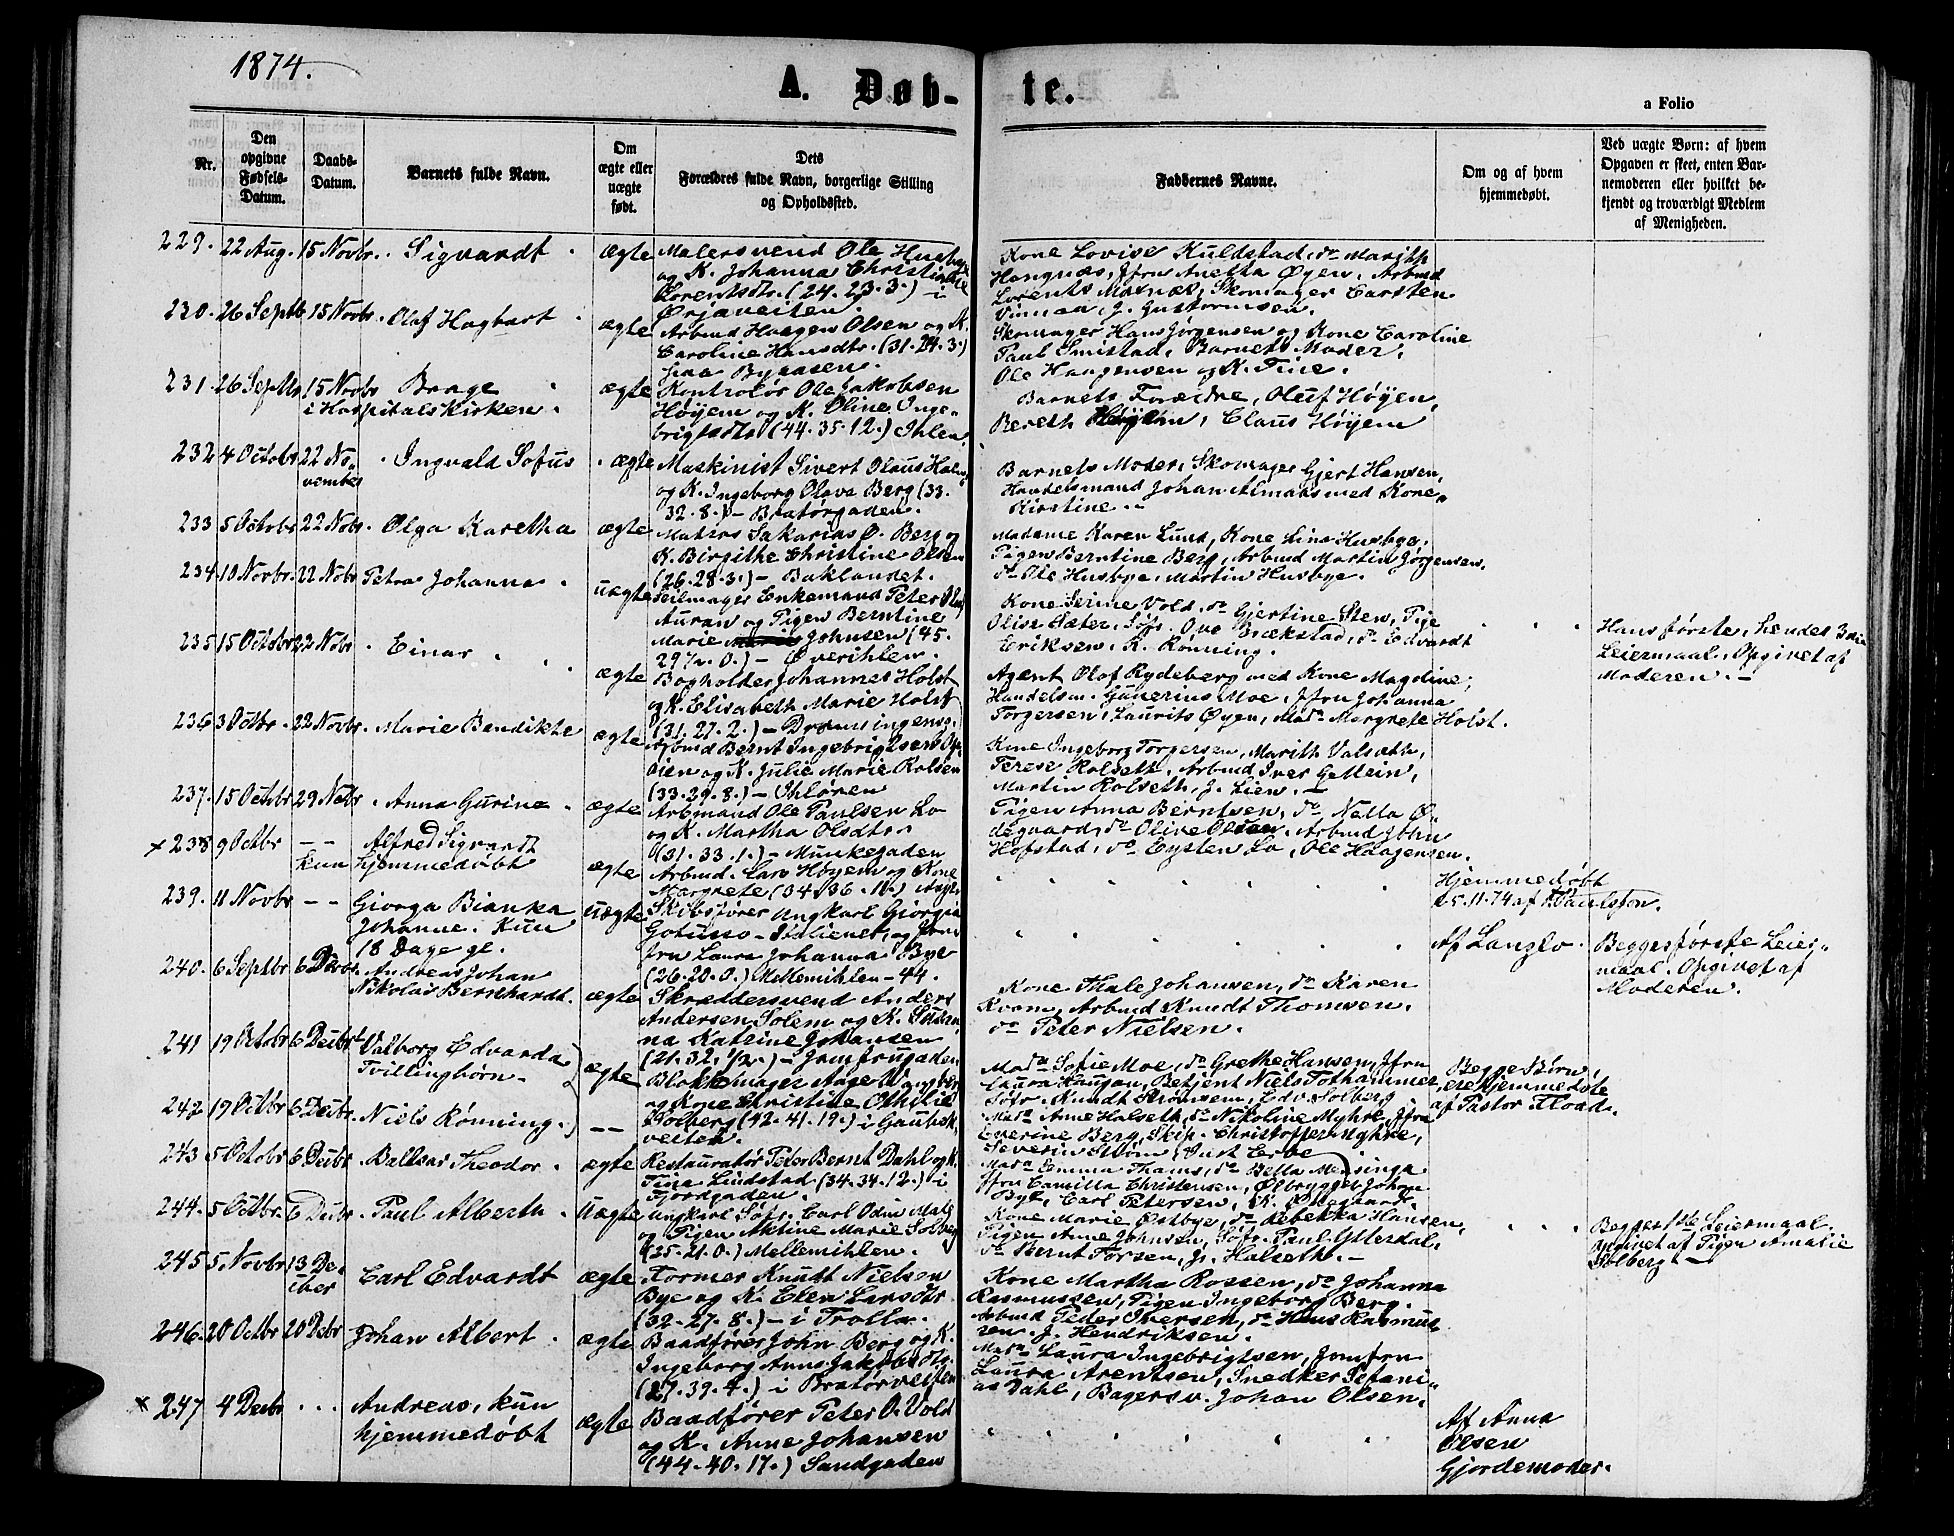 1874.
A. Døb-te.
a Folio
Nr.
Den opgivne Fødsels-Datum.
Daabs-Datum.
Barnets fulde Navn.
Om ægte eller uægte født.
Dets Forældres fulde Navn, borgerlige Stilling og Opholdssted.
Faddernes Navne.
Om og af hvem hjemmedøbt.
Ved uægte Børn: af hvem Opgaven er skeet, enten Barnemoderen eller hvilket bekjendt og troværdigt Medlem af Menigheden.
229. 22 Aug. 15 Novbr. Sigvardt ægte Malersvend Ole Husby
og K. Johanna Christine
Lorentsdtr. (24.23.3.) i
Ørjaveiten.
Kone Lovise Kuldstad, do Marith
Hangnæs, Jfru Anetta Øyen, Arbmd
Lorents Moxnæs, Skomager Carsten
Vinman, J. Gustormsen.
230. 26 Septb 15 Novbr. Olaf Hagbart ægte Arbmd Haagen Olsen og K.
Caroline Hansdtr. (31.24.3.)
paa Byaasen.
Skomager Hans Jørgensen og Kone Caroline
Paul Smistad, Barnets Moder,
Ole Haagensen og K. Tine.
231. 26 Septbr 15 Novbr Brage ægte Kontrolør Ole Jakobsen
i Hospitals Kirken.
Høyem og K. Oline Inge-
brigtsdtr (44.35.12.) Ihlen.
Barnets Forældre, Oluf Høyen,
Bereth Høyem, Claus Høyem
232 4 Octobr 22 No-
vember Ingvald Sofus ægte Maskinist Sivert Olaus Holm
og K. Ingeborg Olava Berg (33.
32.8.) - Bratørgaden.
Barnets Moder, Skomager Gjert Hansen,
Handelsmand Johan Almaas med Kone
Kirstine.
233 5 Octobr 22 Nobr. Olga Karetha ægte Matros Sakarias O. Berg og
K. Birgithe Christine Olsen
(26.28.3.) - Baklandet.
Madame Karen Lund, Kone Lina Husbye,
Pigen Berntine Berg, Arbmd Martin Jørgensen,
do Ole Husbye, Martin Husbye.
234 10 Novbr. 22 Nobr Petra Johanna uægte Seilmager Enkemand Peter Olaf
Auran og Pigen Berntine
Marie Johnsen (45.
29½.0.) - Øverihlen.
Kone Serine Vold, do Gjertine Sten, Pige
Olise Sæter, Søfr. Ove Brækstad, do Edvardt
Eriksen, K. Rønning.
Hans første, hendes 3die
Leiermaal. Opgivet af
Moderen. -
235 15 Octobr 22 Nobr Einar ægte Bogholder Johannes Holst
og K. Elisabeth Marie Holst
(31.27.2.) - Dronningensg.
Agent Olof Rydeberg med Kone Magdine,
Handelsm. Gunerius Moe, Jfru Johanna
Torgersen, Laurits Øyen, Mad. Margrete Holst.
236 3 Octbr. 22 Novbr. Marie Bendikte ægte Arbmd Bernt Ingebrigtsen Op-
dien og K. Julie Marie Rolsen
(33.29.8.) - Ihløren
Kone Ingeborg Torgersen, Marith Valsæth,
Terese Holseth, Arbmd Iver Gellein,
Martin Rolseth, J. Lien. -
237. 15 Octbr 29 Nobr. Anna Gurine ægte Arbmand Ole Paulsen Lo
og K. Martha Olsdtr.
(31.33.1.) - Munkegaden
Pigen Anna Berntsen, do Netta Ø-
degaard, do Olive Olsen, Arbmd John
Hofstad, do Eysten Lo, Ole Haagensen.
x 238 9 Octbr - - Alfred Sigvardt
kun hjemmedøbt ægte Arbmd. Lars Høyem og Kone
Margrete (34.36.11.)
Hjemmedøbt
25.11.74 af Paulsson.
239. 11 Novbr - - Giorga Bianka
Johanne. Kun
18 Dage gl.
uægte Skibsfører Ungkarl Giorgio
Gotusso - Italienet, og Jom-
fru Laura Johanna Bye
(26.20.0.) Mellemihlen - 44.
Af Lanzlo.
Begges første Leier-
maal. Opgivet af
Moderen.
240. 6 Septbr 6 Decbr. Andreas Johan
Nikolai Bernhardt. ægte Skræddersvend Anders
Andersen Solem og K. Solem
na Katrine Johansen
(21.32.½.) - Jomfrugaden
Kone Thale Johansen, do Karen
Kvam, Arbmd Knudt Thomsen,
do Peter Nielsen.
241 19 Octobr 6 Decbr. Valborg Edvarda
Tvillingbørn - ægte Blokkmager Aage Vangberg
og Kone Christine Othilie
Solberg (42.41.19.) i Gaubek
veiten.
Mad. Sofie Moe, do Grethe Hansen, Jfru
Laura Haugan, Betjent Niels Tothammer
Søfr. Knudt Strømsem, Edv. Solberg
Begge Børn
ere hjemmedøbte
af Pastor Floods.
242 19 Octbr 6 Decbr Niels Rønning. - -
Mad. Anne Halseth, do Nikoline Myhre, Jfru
Everine Berg, Skip. Christoffer Myhre,
Severin Strøm, Just Lerbe
243 5 Octobr 6 Decbr. Baltsar Theodor. ægte Restauratør Peter Bernt Dahl og K.
Tina Lindstad (34.34.12.) i
Fjordgaden.
Mad. Emma Thams, do Betta Messinga
Jfru Camilla Christensen, Ølbrygger Johan
Bye, Carl Petersen, N. Ødegaard.
244. 5 Octbr. 6 Decbr. Paul Alberth. uægte Ungkarl Søfr. Carl Odin Malg
og Pigen Aktine Marie Solberg
(25.21.0.) Mellemihlen.
Kone Marie Østbye, do Rebekka Hansen,
Pigen Anne Johnsen, Søfr. Paul Ytterdal,
do Bernt Torsen, J. Halseth. -
Begges 1ste Leiermaal.
Opgivet af Pigen Amalie
Solberg -
245 5 Novbr 13 De-
cber Carl Edvardt ægte Former Knudt Nielsen
Bye og K. Elen Larsdtr
(32.27.8.) - i Trolla.
Kone Martha Rossen, do Johanna
Rasmussen, Pigen Ingeborg Berg,
Arbmd Peder Iversen, do Hans Rasmus-
sen. J. Hendriksen.
246. 20 Octbr 20 Decbr Johan Albert. ægte Baadfører John Berg og K.
Ingeborg Anna Jakobsdtr.
(27.39.4.) i Bratørveiten
Mad. Laura Ingebrigtsen, Jomfru
Laura Arentsen, Snedker Stefani-
as Dahl, Bagersv. Johan Olsen.
x 247 4 Decbr ... Andreas, kun
hjemmedøbt ægte Baadfører Peter O. Vold
og K. Anne Johansen
(44.40.17.) Sandgaden
Af Anna
Olsen
Gjordemoder.